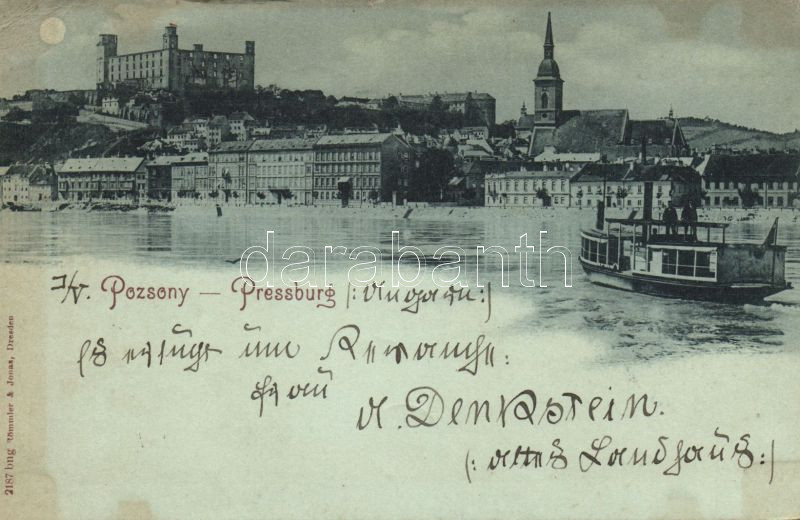 Pozsony — Pressburg (:Ungarn:)
Es ersucht um Revanche:
Frau
A. Denkstein.
(: altes Landhaus :)
darabanth
2187 bng Römmler & Jonas, Dresden